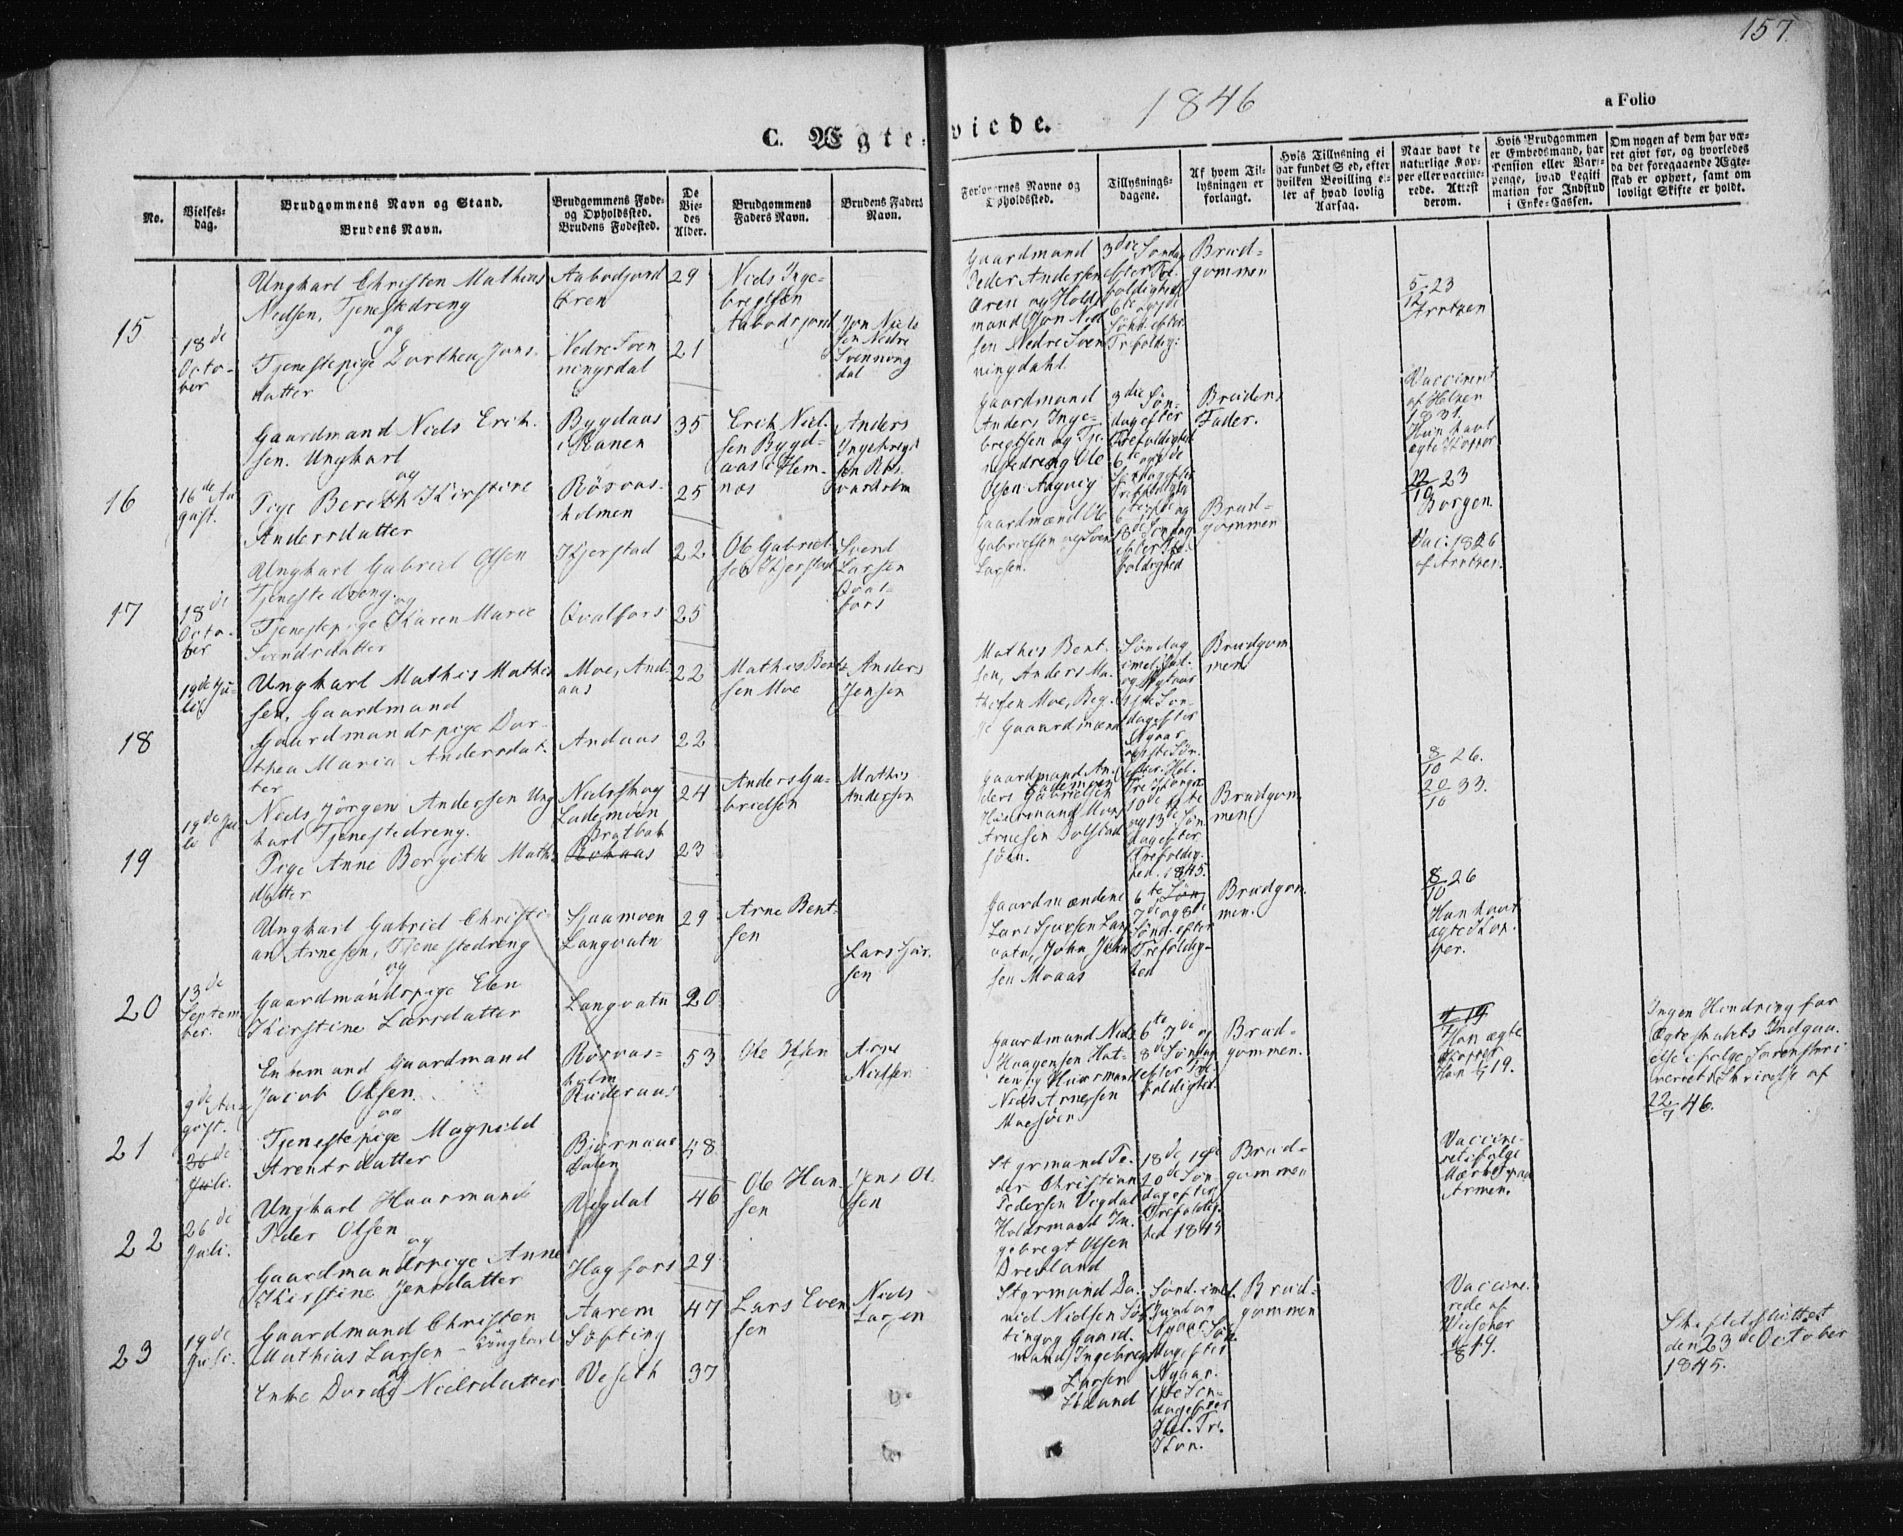 157.
1846
a Folio
C. Ægte-
viede.
No.
Vielses-
dag.
Brudgommens Navn og Stand.
Brudens Navn.
Brudgommens Føde-
og Opholdssted.
Brudens Fødested.
De
Vie-
des
Alder.
Brudgommens
Faders Navn.
Brudens Faders
Navn.
Forlovernes Navne og
Opholdssted.
Tillysnings-
dagene.
Af hvem Til-
lysningen er
forlangt.
Hvis Tillysning ei
har fundet Sted, efter
hvilken Bevilling el-
ler af hvad lovlig
Aarsag.
Naar havt de
naturlige Kop-
per eller vaccine-
rede. Attest
derom.
Hvis Brudgommen
er Embedsmand, har
Pension eller Var-
penge, hvad Legiti
mation for Indskud
i Enke-Cassen.
Om nogen af dem har væ-
ret givt før, og hvorledes
da det foregaaende Ægte-
skab er ophørt, samt om
lovligt Skifte er holdt.
15
18de
Octo-
ber
Ungkarl Christen Mathias
Nielsen, Tjenestedreng
og
Tjenestepige Dorthea Jons-
datter
Aabodjord
Øren
Nedre Sven
ningsdal
29
21
Niels Inge-
bregtsen
Aabodjord
Jon Niels
sen Nedre
Svenning
dal
Gaardmand
Peder Andersen
Øren og Holds
mand Jon Niel
sen Nedre Sven
ningdahl.
3die Søndag
efter Tre
foldighed
6te og 7de
Sønd. efter
Trefoldig:
Brud-
gommen
5/12 23
Arntzen
16
16de Au
gust.
Gaardmand Niels Erik-
sen. Ungkarl
og
Pige Berith Kirstine
Andersdatter
Bygdaas
i Ranen
Røsvas-
holmen
35
25
Erik Niel-
sen Bygd-
aas i Hem-
næs
Anders
Ingebregt
sen Røs-
vasholm
Gaardmand
Anders Inge-
bregtsen og Tje-
nestedreng Ole
Olsen
3die Søn-
dag efter
Trefoldighed
6te og 7de
Søndag efter
Trefoldighed
Brudens
Fader.
Vaccineret
af Holzen
1831.
Hun havt
ægte Kopper
22/10 23
Borgen.
17
18de
Octo-
ber
Ungkarl Gabriel Olsen
Tjenestedreng
og
Tjenestepige Karen Marie
Svendsdatter
Kjerstad
Qvalfors
22
25
Ole Gabriel-
sen Kjerstad
Svend
Larsen
Qval-
fors
Gaardmænd Ole
Gabrielsen og Sven
Larsen.
6te 17de og
18de Søndag
efter Tre-
foldighed
Brud-
gommen
Vac: 1826
af Arntzen.
18
19de Ju-
li
Ungkarl Mathis Mathis
sen, Gaardmand
Gaardmandspige Dor-
thea Maria Andersdat-
ter
Moe, And-
aas
Andaas
22
22
Mathis Bent-
sen Moe
Anders
Jensen
Mathis Bent-
sen, Anders Ma-
thisen Moe, Beg-
ge Gaardmænd
Søndag
imel. Jul.
og Nytaar
1ste Søn-
dag efter
Nyaar
og 1ste Søn.
efter Hel.
Tre Konger
Brudgom
men
8/10 26.
20/10 33.
19
19de Ju
li
Niels Jørgen Andersen Ung
karl Tjenestedreng.
Pige Anne Bergithe Math-
datter
Nielsskog
Lademoen
Bratbak
23
24
Anders Ga-
brielsen
Mathis
Andersen
Gaardmand An-
ders Gabrielsen
Lademoen
Huusmand Mons
Arnesen Dolstad
søen.
10de 11te
og 13de Søn
dag efter
Trefoldig-
hed. 1845.
Brudgom
men
8/10 26
Hun havt
ægte Kop-
per.
20
13de
Septem
ber.
Ungkarl Gabriel Christi-
an Arnesen, Tjenestedreng
og
Gaardmandspige Elen
Kirstine Larsdatter
Sjaamoen
Langvatn
Langvatn
29
20
Arne Bent-
sen
Lars Sjur-
sen
Gaardmændene
Lars Sjursen Lang
vatn, John John
sen Moaas
6te Søn
7de og 8de
Sønd. efter
Trefoldig-
hed
Brudgom
men.
21
9de Au
gust.
26de
Juli.
Enkemand Gaardmand
Jacob Olsen.
og
Tjenestepige Magnild
Arentsdatter
Røsvas-
holm
Ruderaas
Bjørnaas
Dalen
53
48
Ole Olsen
Arne
Nielsen
Gaardmand Niels
Haagensen Hat-
ten og Huusmand
Niels Arnesen
Moesøen
6te 7de og
8de Søndag
efter Tre
foldighed
Brud-
gommen.
Han ægte
Kopper
Hun 19.
Ingen Hindring for
Ægteskabets Indgaa-
else ifølge Sorenskri-
veriets Skrivelse af
22/7 46.
22
26de
Juli.
Ungkarl Huusmand
Peder Olsen
og
Gaardmandspige Anne
Kirstine Jensdatter
Vegdal
Hagfors
46
29
Ole Han-
sen
Jens Ol-
sen
Styrmand Pe-
der Christian
Pedersen Vegdal
Holdsmand In-
gebregt Olsen
Drevland
18de 19de
20de Søn-
dag efter
Trefoldig-
hed 1845
Brud-
gommen
Vaccine-
ret ifølge
Mærket paa
Armen.
23
19de
Juli.
Gaardmand Christen
Mathias Larsen - Ungkarl
og
Enke Dorde Nielsdatter
Aarem
Søfting
Veseth
47
37
Lars Even
sen
Niels
Larsen
Styrmand Da-
niel Nielsen Søf
ting og Gaard-
mand Ingebregt
Larsen
Sønd. imel.
Juul og
Nyaar. Søn
dag efter
Nyaar.
1ste Søn-
dag efter
Hel. Tr.
Kon.
Brud-
gommen
Vaccine-
rede af
Wischer
19.
Skiftet sluttet
den 23de October
1845.